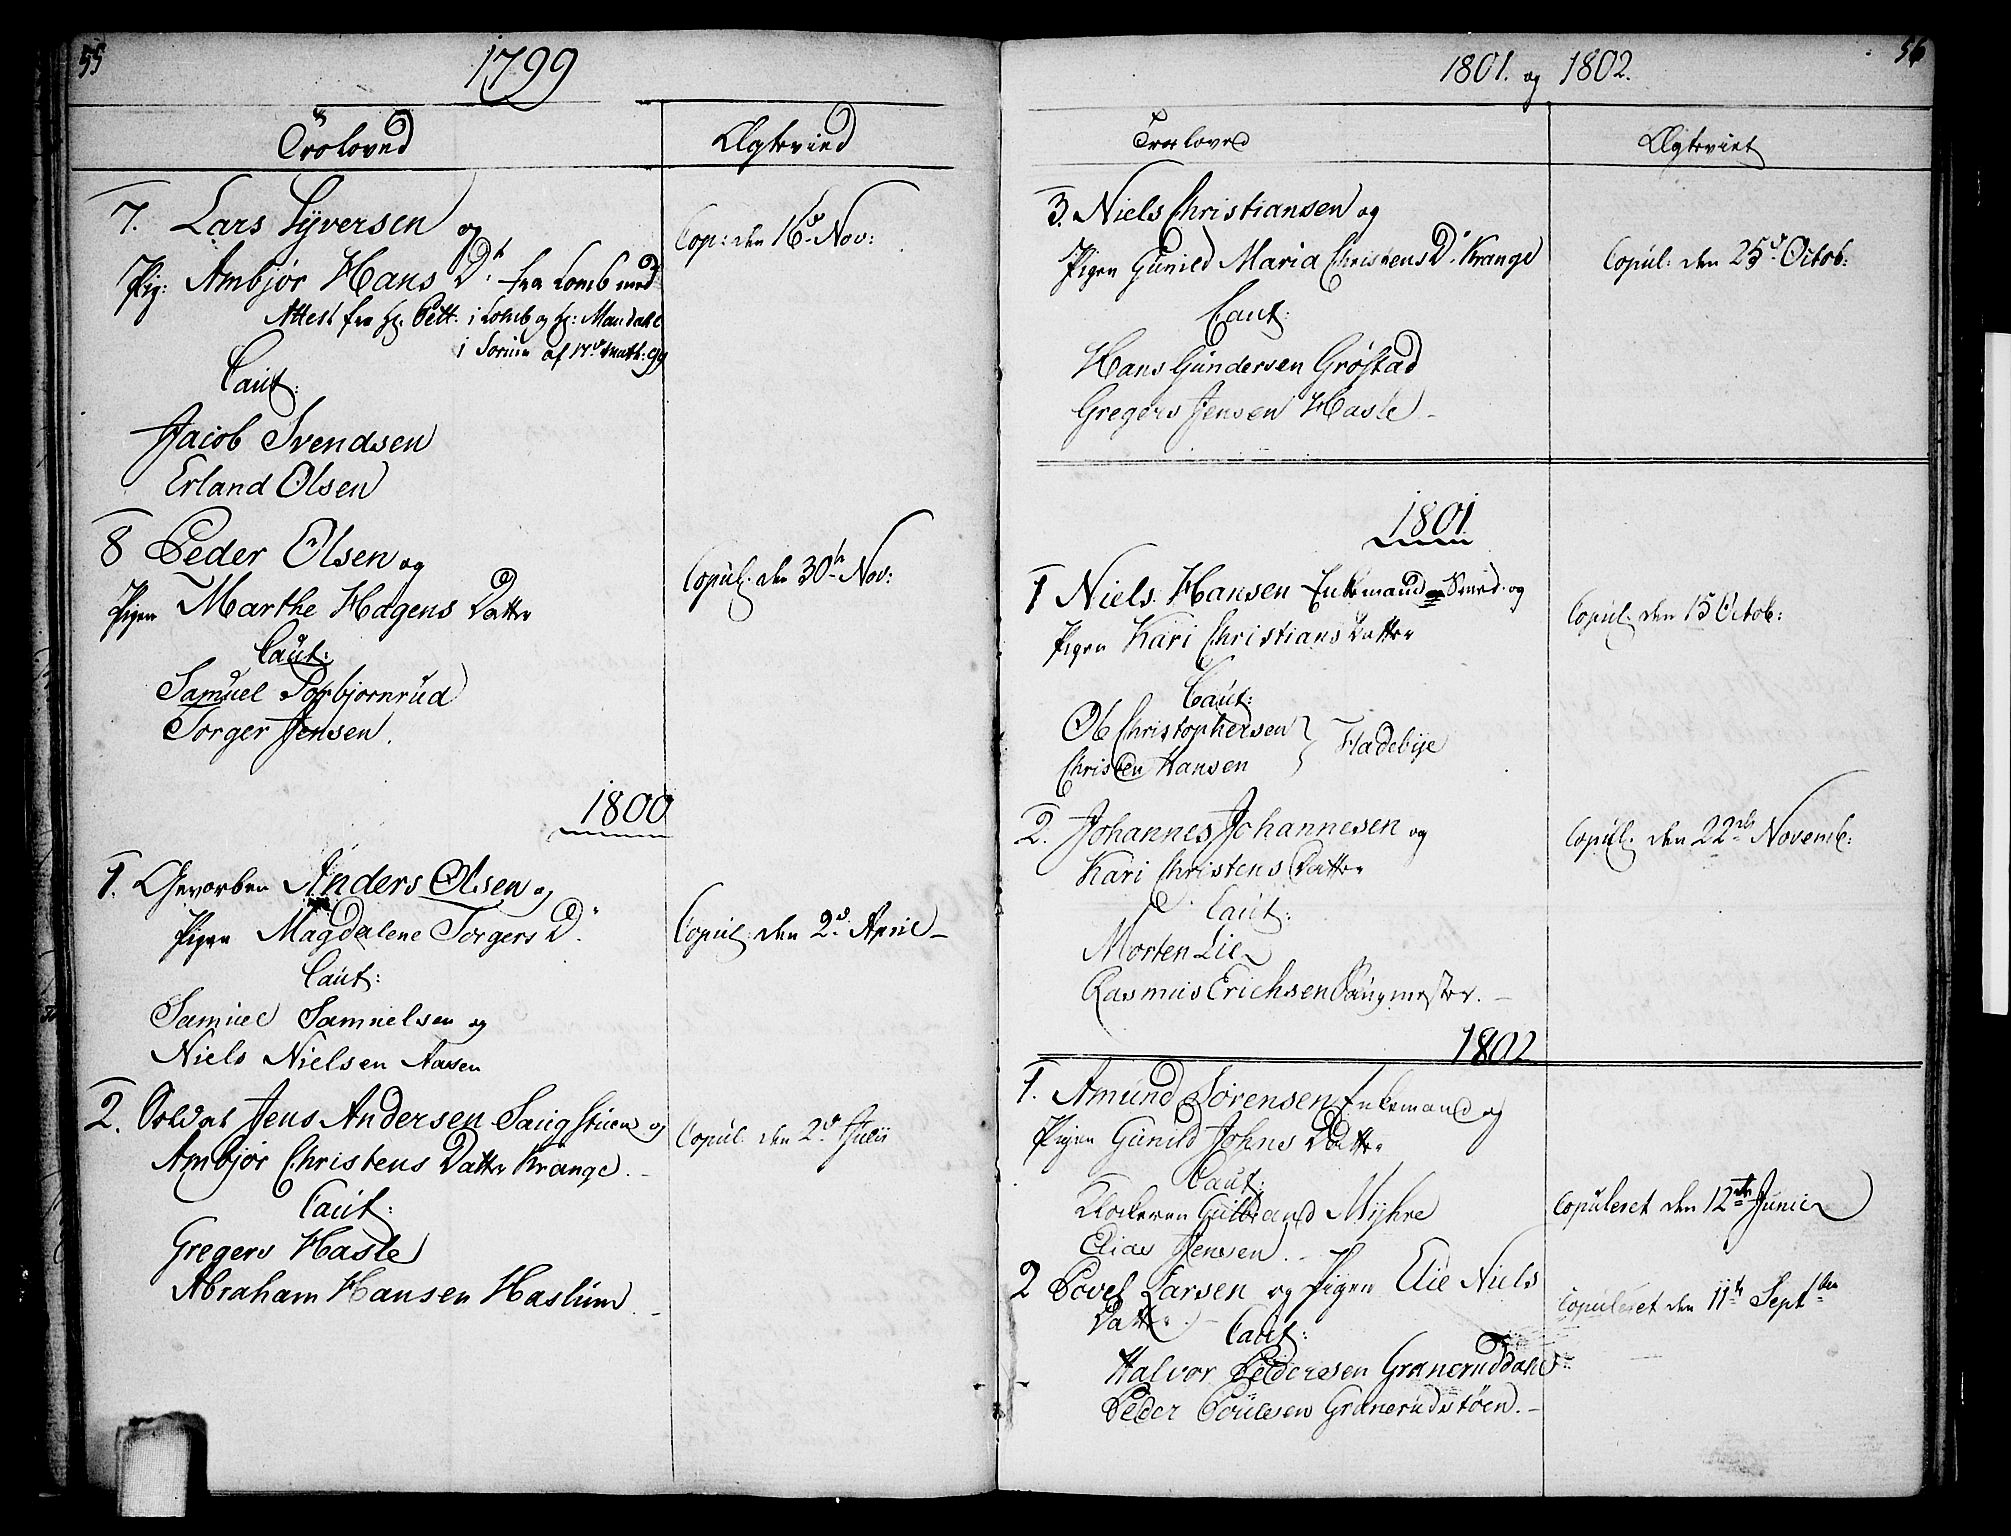 55
1799
Troloved
Ægtevied
7. Lars Syversen og
Pig: Ambjør Hans Dr fra Lomb med
Attest fra Hr. Pett. i Lomb og Hr: Mandahl
i Sorum af 17de
Caut:
Jacob Svendsen
Erland Olsen
Cop: den 16de Nov:
8 Peder Olsen og
Pigen Marthe Hagens Datter
Caut:
Samuel Torbjornrud
Torger Jensen.
Copul. den 30te Nov:
1800
1. Gevorben Anders Olsen og
Pigen Magdalene Torgers D.
Caut:
Samuel Samuelsen og
Niels Nielsen Aasen
Copul: den 2de April
2. Soldat Jens Andersen Saugstuen og
Ambjør Christens Datter Krange.
Caut:
Gregers Hasle
Abraham Hansen Haslum
Copul: den 2de Julii
56
1801. og 1802.
Troloved
Ægteviet
3. Niels Christiansen og
Pigen Gunild Maria Christens Dr Krange
Caut:
Hans Gundersen Grøstad
Gregers Jensen Hasle
Copul: den 25de Octob:
1801
1 Niels Hansen Enkemand Smed og
Pigen Kari Christians Datter
Caut:
Ole Christophersen
Christen Hansen } Fladebye
Copul. den 15 Octob:
2. Johannes Johannesen og
Kari Christens Datter
Caut:
Morten Lie
Rasmus Erichsen Saugmester.
Copul. den 22de Novemb:
1802
1. Amund Sørensen Enkemand og
Pigen Gunild Johns Datter
Caut:
Klockeren Gulbrand Myhre
Elias Jensen.
Copuleret den 12te Junii
2 Povel Larsen og Pigen Elie Niels
Datter.
Caut:
Halvor Pedersen Graneruddahl
Peder Poulsen Granerudstøen.
Copuleret den 11te Septbr